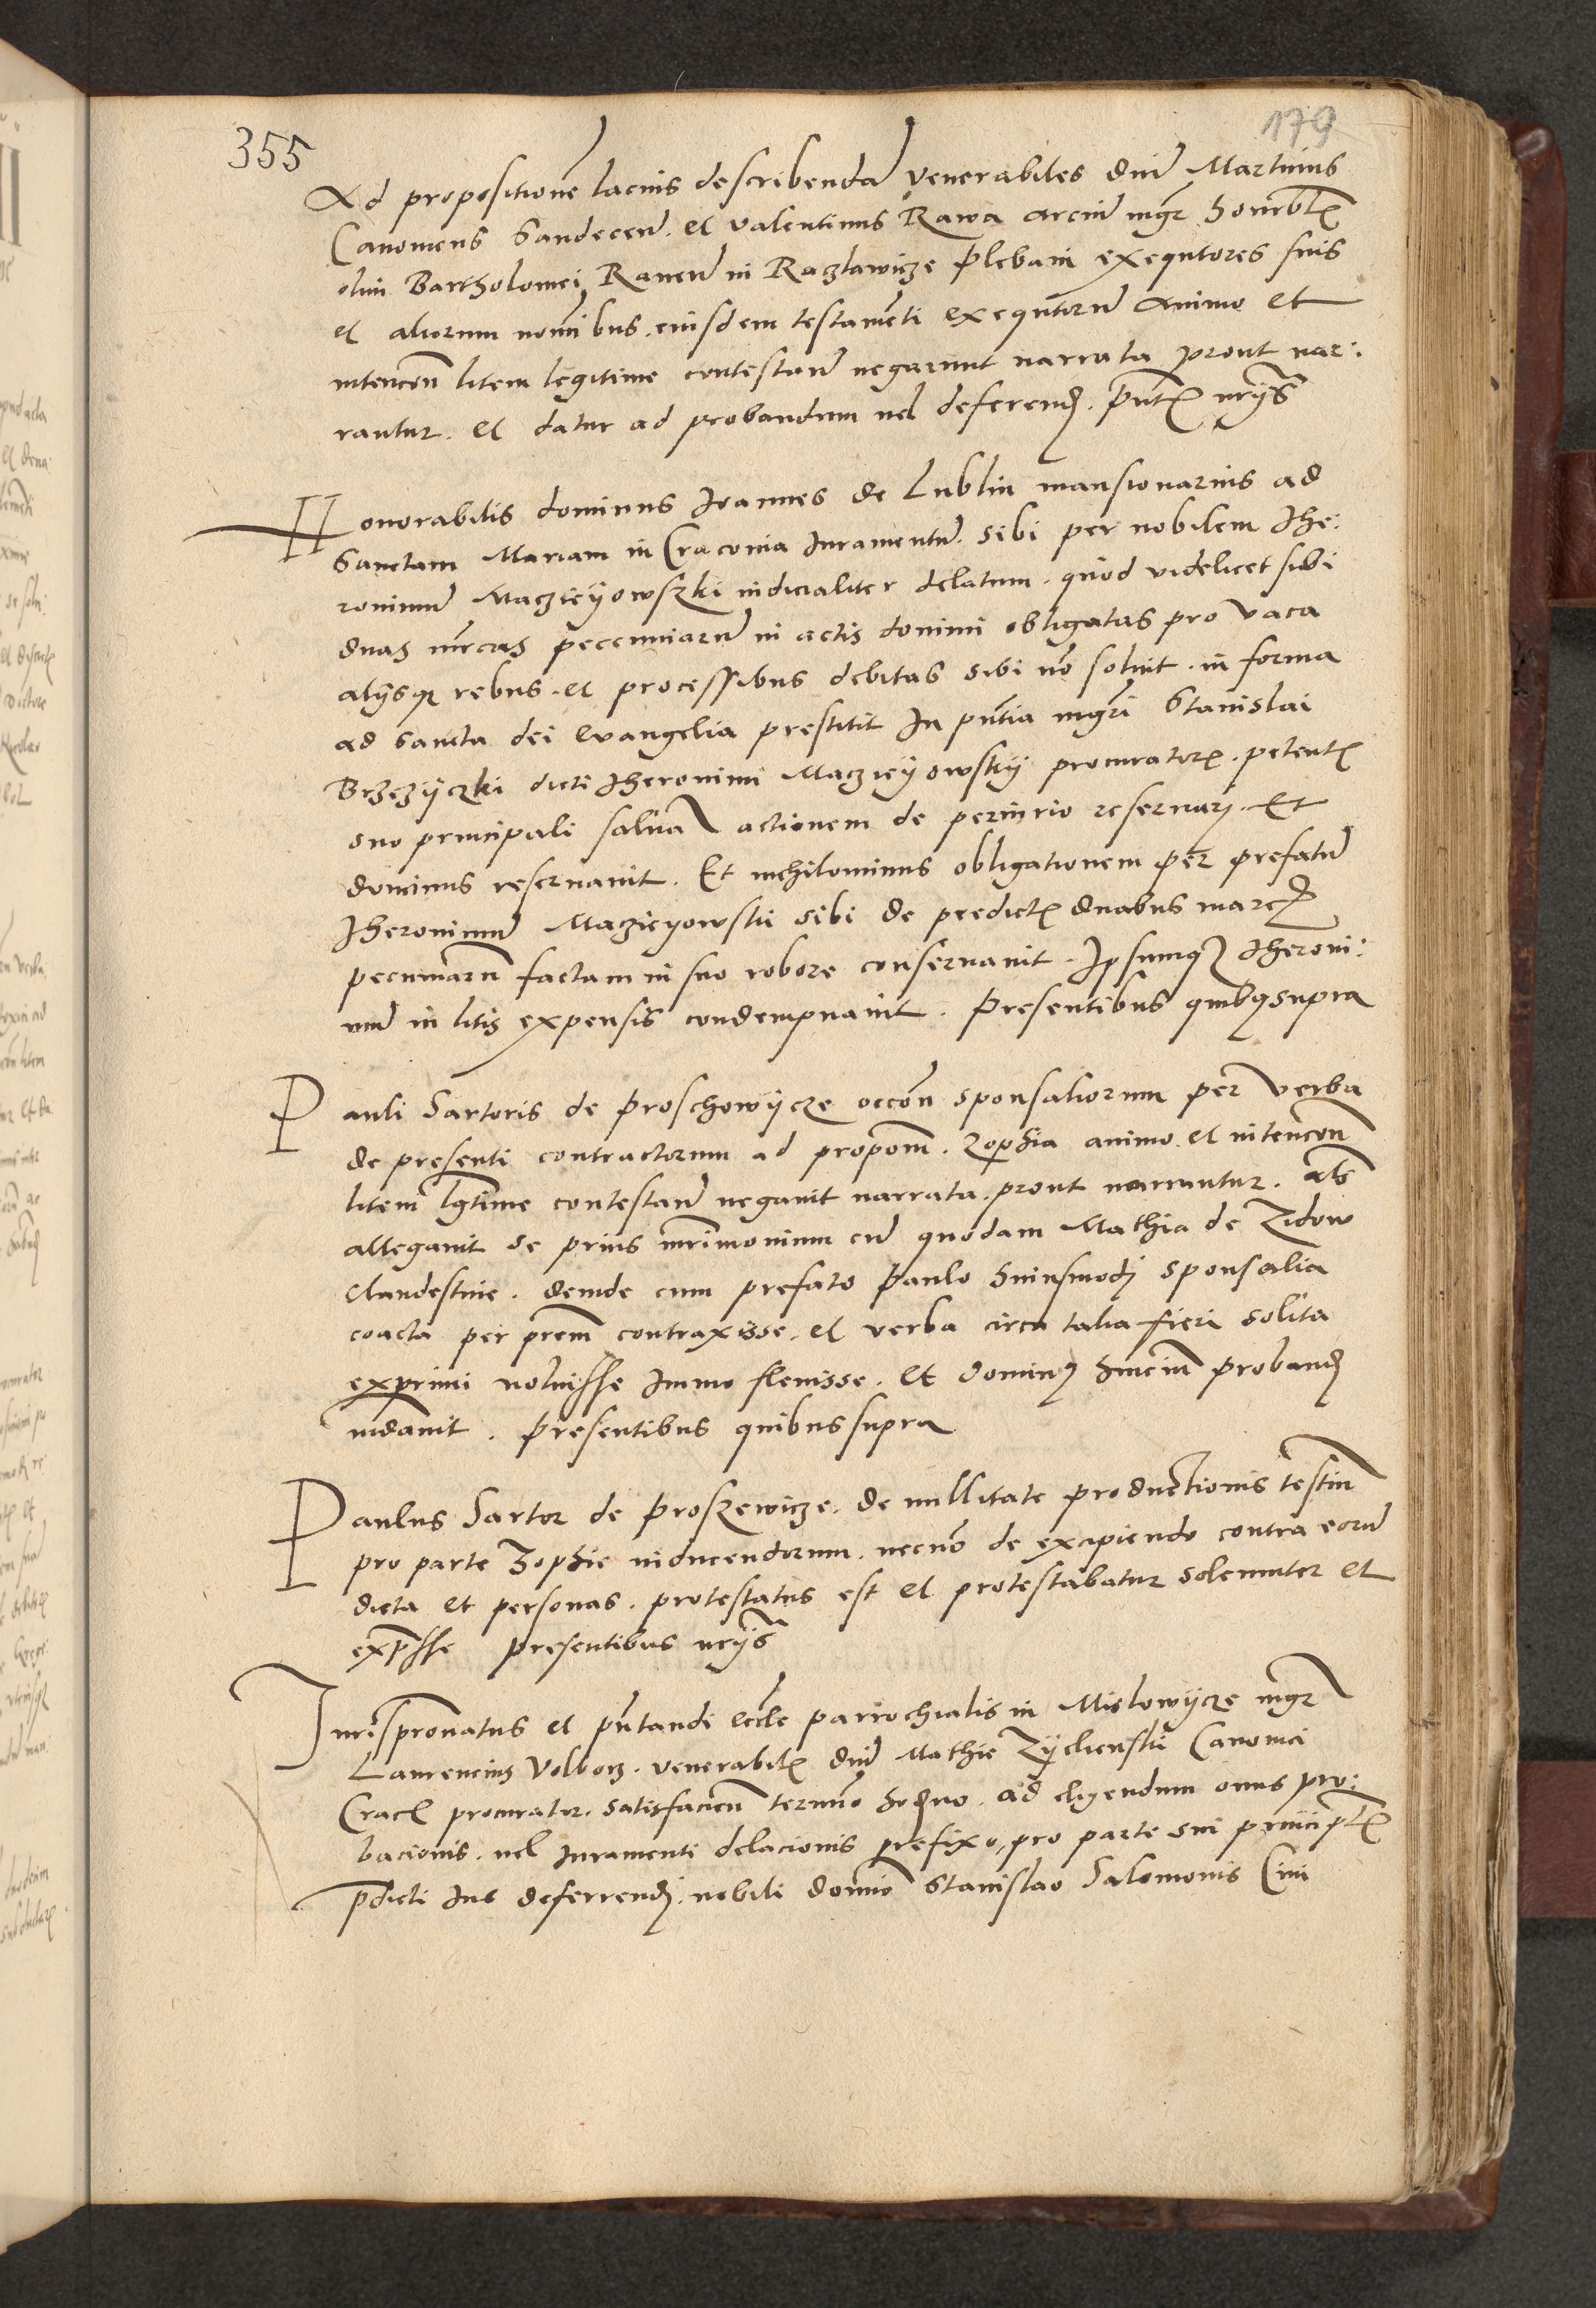 355
179
Ad propositione lacius describenda venerabiles dni Martinus
Canonicus Sandecen. et Valentinus Rawa arciu mgr honrbl
olim Bartholomei Raven in Raczlawicze plebani exequtores suis
et aliorum nominibus eiusdem testamenti exequtoru animo et
intencon litem legitime contestan negarunt narrata prout nar:
rantur. et datur ad probandum vel deferend. pntt
Honorabilis dominus Joannes de Lublin mansionarius ad
Sanctam Mariam in Cracovia Juramentu sibi per nobilem Jhe:
ronimu Maczieyowszki iudicialiter delatum. quod videlicet sibi
duas mrcas pecuniaru in actis domini obligatas pro vaca
alysq rebus. et processibus debitas sibi no soluit. in forma
ad Sancta dei evangelia prestitit In pntia mgri Stanislai
Brzezyczki dicti Jheronimi Maczieyowsky procuratore. petente
suo principali salua actionem de periurio reservari. Et
dominus reservavit. Et nichilominus obligationem per prefatu
Jheronimu Maczieyowski sibi de predict duabus marc
pecuniaru factam in suo robore conservavit. Ipsumq Jheroni:
mu in litis expensis condempnavit. Presentibus quibqsupra
Pauli Sartoris de Proschowycze occon sponsaliorum per verba
de presenti contractorum ad propom. Zophia animo et intencon
litem lgtime contestan negavit narrata prout narrantur. als
allegavit se prius mrimonium cu quodam Mathia de Zidow
clandestine. deinde cum prefato Paulo huiusmodi sponsalia
coacta per prem contraxisse. et verba circa talia fieri solita
exprimi noluisse Immo flevisse. Et dominus huiusmodi proband
mdavit. Presentibus quibussupra
Paulus Sartor de Proszewicze. de nullitate productionis testiu
pro parte Zophie inducendorum. necno de excipiendo contra eoru
dicta et personas. protestatus est et protestabatur solemniter et
expsse presentibus
Jurispronatus et pntandi eccle parrochialis in Mislowycze mgr
Laurencius Volborz. venerabil dni Mathie Zyclienski Canonici
Crac procurator. satisfacien termino hodno. ad eligendum onus pro:
bacionis. vel Juramenti delacionis prefixo, pro parte sui principl
pdicti Jus deferrend. nobili domino Stanislao Salomonis Civi